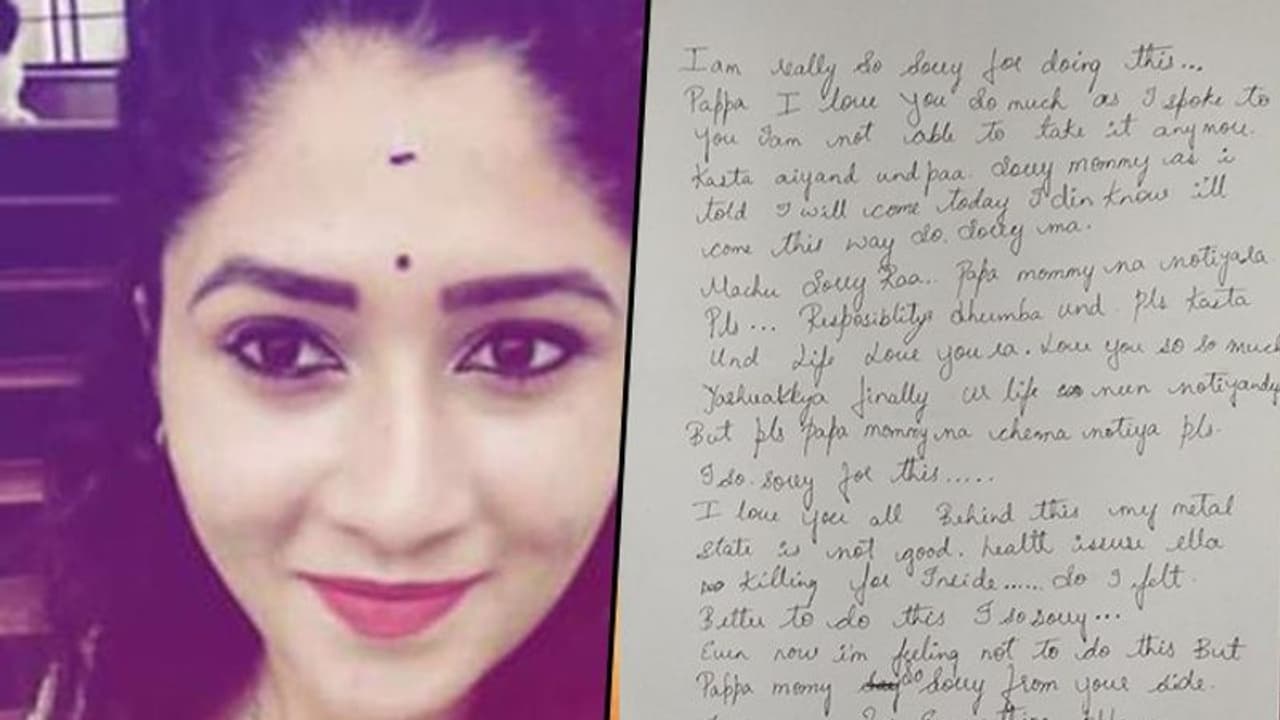 I am really so sorry for doing this...
Pappa I love you so much as I spoke to
you Iam not able to take it anymore.
Kasta aiyand und paa. Sorry mommy as i
told I will come today I din know ill
come this way so. Sorry ma.
Machu Sorry Raa.. Papa mommy na notiyala
Pls... Resposiblitys dhumba und. pls Kasta
Und Life Love you ra. Love you so so much
Yashuakkya finally ur life neen notiyandy
But pls papa mommy na chenna notiya pls.
I so. sorry for this.....
I love you all Behind this my metal
state is not good. health issuse ella
killing for Inside...... So I felt
Better to do this I so sorry...
Even now i'm feeling not to do this But
Pappa momy so Sorry from your side.